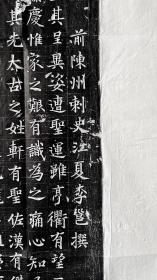 前陳州刺史江夏李邕撰
其呈異姿遭聖運雖亭衢有望
慶惟家之艱有識為之痛心知
其先太古之姓軒有聖佐漢有